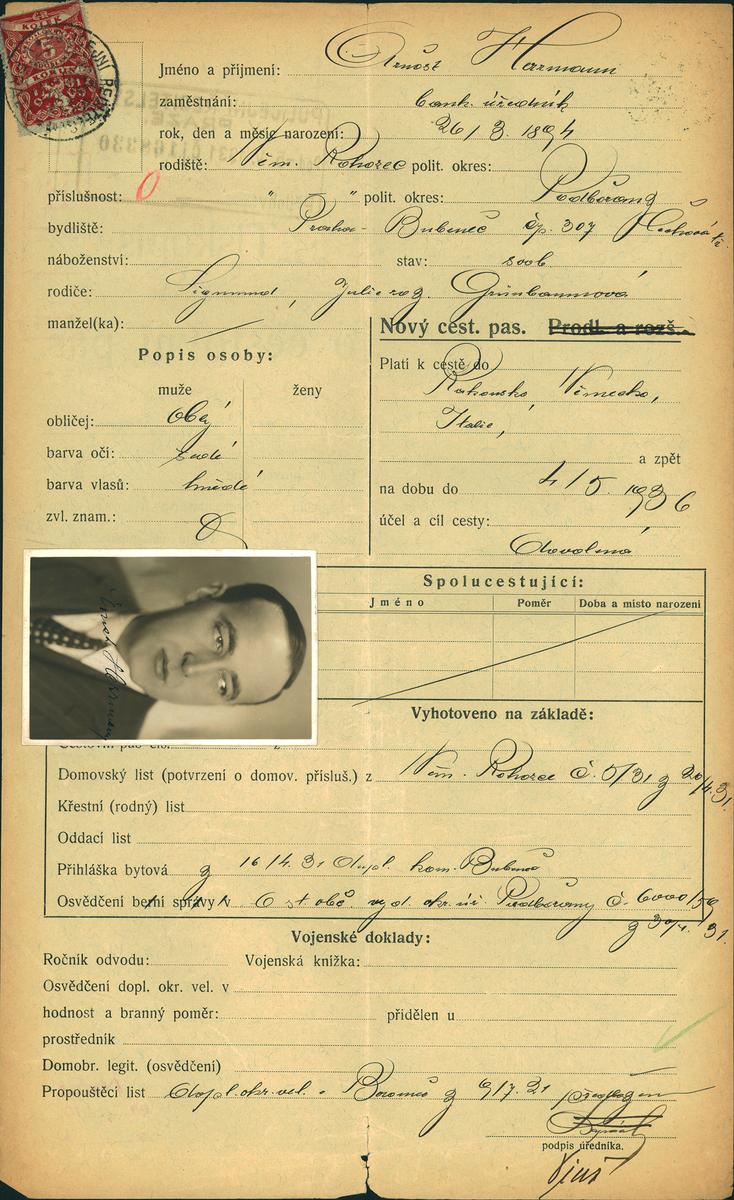 Jméno a příjmení: Arnošt Herrmann
zaměstnání: bank. úředník
rok, den a měsíc narození: 26/3. 1894
rodiště: Něm. Rohozec polit. okres: Podbořany
příslušnost: " " polit. okres:
bydliště: Praha - Bubeneč čp. 307
náboženství: stav: svob.
rodiče: Sigmund, Julie roz. Grünbaumová
manžel(ka):
Nový cest. pas. Prodl. a rozš.
Popis osoby:
Platí k cestě do
muže ženy
Rakouska, Německa,
obličej: obl.
Italie,
barva očí: šedé
a zpět
barva vlasů: hnědé
na dobu do 4/5. 1936
zvl. znam.:
účel a cíl cesty:
dovolená
Spolucestující:
Jméno Poměr Doba a místo narození
Vyhotoveno na základě:
Domovský list (potvrzení o domov. přísluš.) z Něm. Rohozec č. 5/31 z 20/4. 31.
Křestní (rodný) list
Oddací list
Přihláška bytová z 16/4. 31 kom. Bubeneč
Osvědčení berní správy v O st. obč. vyd. okr. úř. Podbořany č. 6000/
z 30/4. 31.
Vojenské doklady:
Ročník odvodu: Vojenská knížka:
Osvědčení dopl. okr. vel. v
hodnost a branný poměr: přidělen u
prostředník
Domobr. legit. (osvědčení)
Propouštěcí list dopl. okr. vel. z 9/7. 21
podpis úředníka.